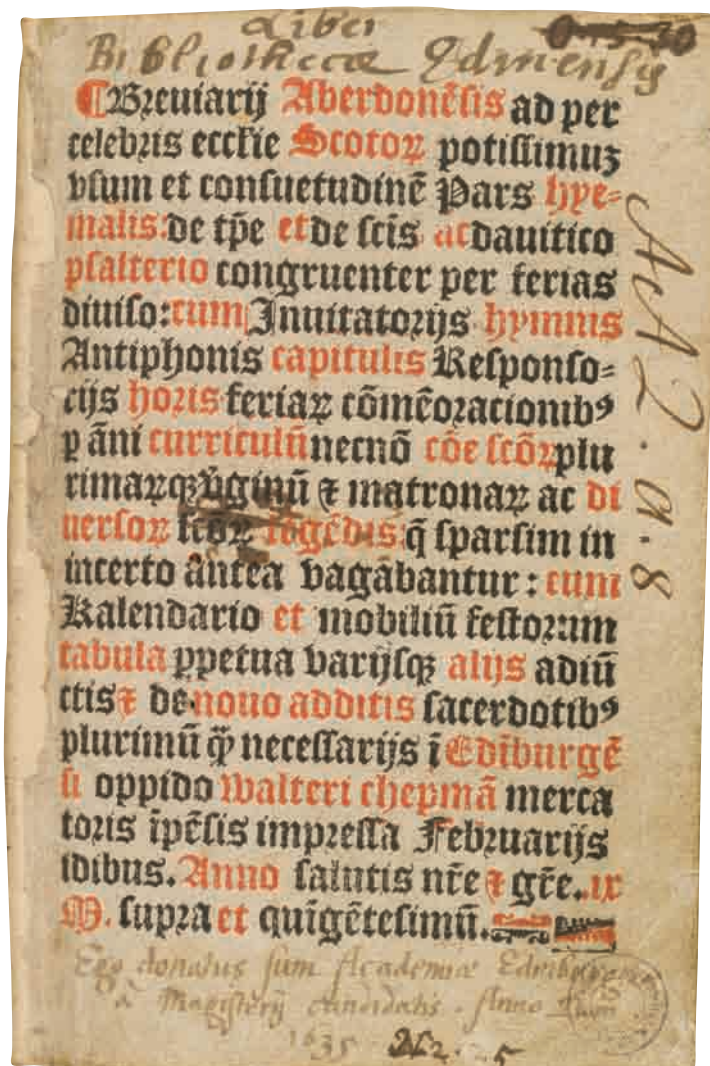 Liber
Bibliothecæ Edinensis
¶Breuiarij Aberdonẽsis ad per
celebris eccłie Scotoꝝ potissimuʒ
vsum et consuetudinẽ Pars hye⸗
malis:de tp̃e et de sctĩs ac dauitico
psalterio congruenter per ferias
diuiso:cum Inuitatorijs hymnis
Antiphonis capitulis Responso⸗
rijs horis feriaꝝ cõmẽoracionibꝰ
ꝑ ãni curriculũ necnõ cõe sctõꝝ plu
rimaꝝqʒ ṽginũ ⁊ matronaꝝ ac di
uersoꝝ sctõꝝ legẽdis: q̃ sparsim in
incerto ãntea vagãbantur: cum
Kalendario et mobiliũ festorum
tabula ꝑpetua varijsqʒ alijs adiũ
ctis ⁊ de nouo additis sacerdotibꝰ
plurimũ qꝫ̃ necessarijs ĩ Edĩburgẽ
si oppido walteri chepmã merca
toris ĩpẽsis impressa Februarijs
idibus. Anno salutis nrẽ ⁊ grẽ. ix
M. supra et quĩgẽtesimũ.
Ego donatus sum Academiæ
à Magisterij candidatis. Anno
1635
AcA 2. a. 8